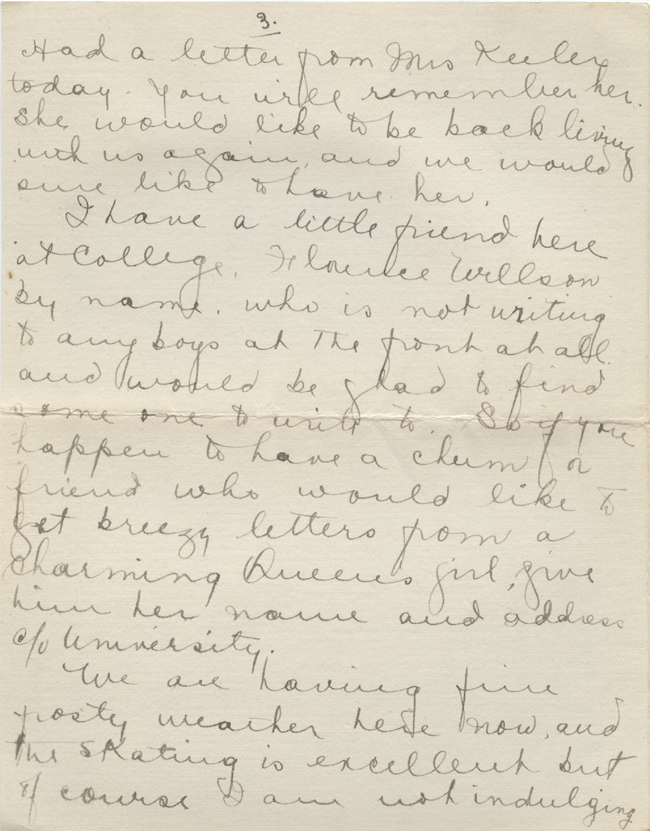 3.
Had a letter from Mrs Keeley
today. You will remember her.
She would like to be back living
with us again, and we would
sure like to have her.
I have a little friend here
at College, Florence Willson
by name, who is not writing
to any boys at the front at all
and would be glad to find
some one to write to. So if you
happen to have a chum or
friend who would like to
get breezy letters from a
charming Queens girl, give
him her name and address
c/o University.
We are having fine
frosty weather here now, and
the skating is excellent but
of course I am not indulging